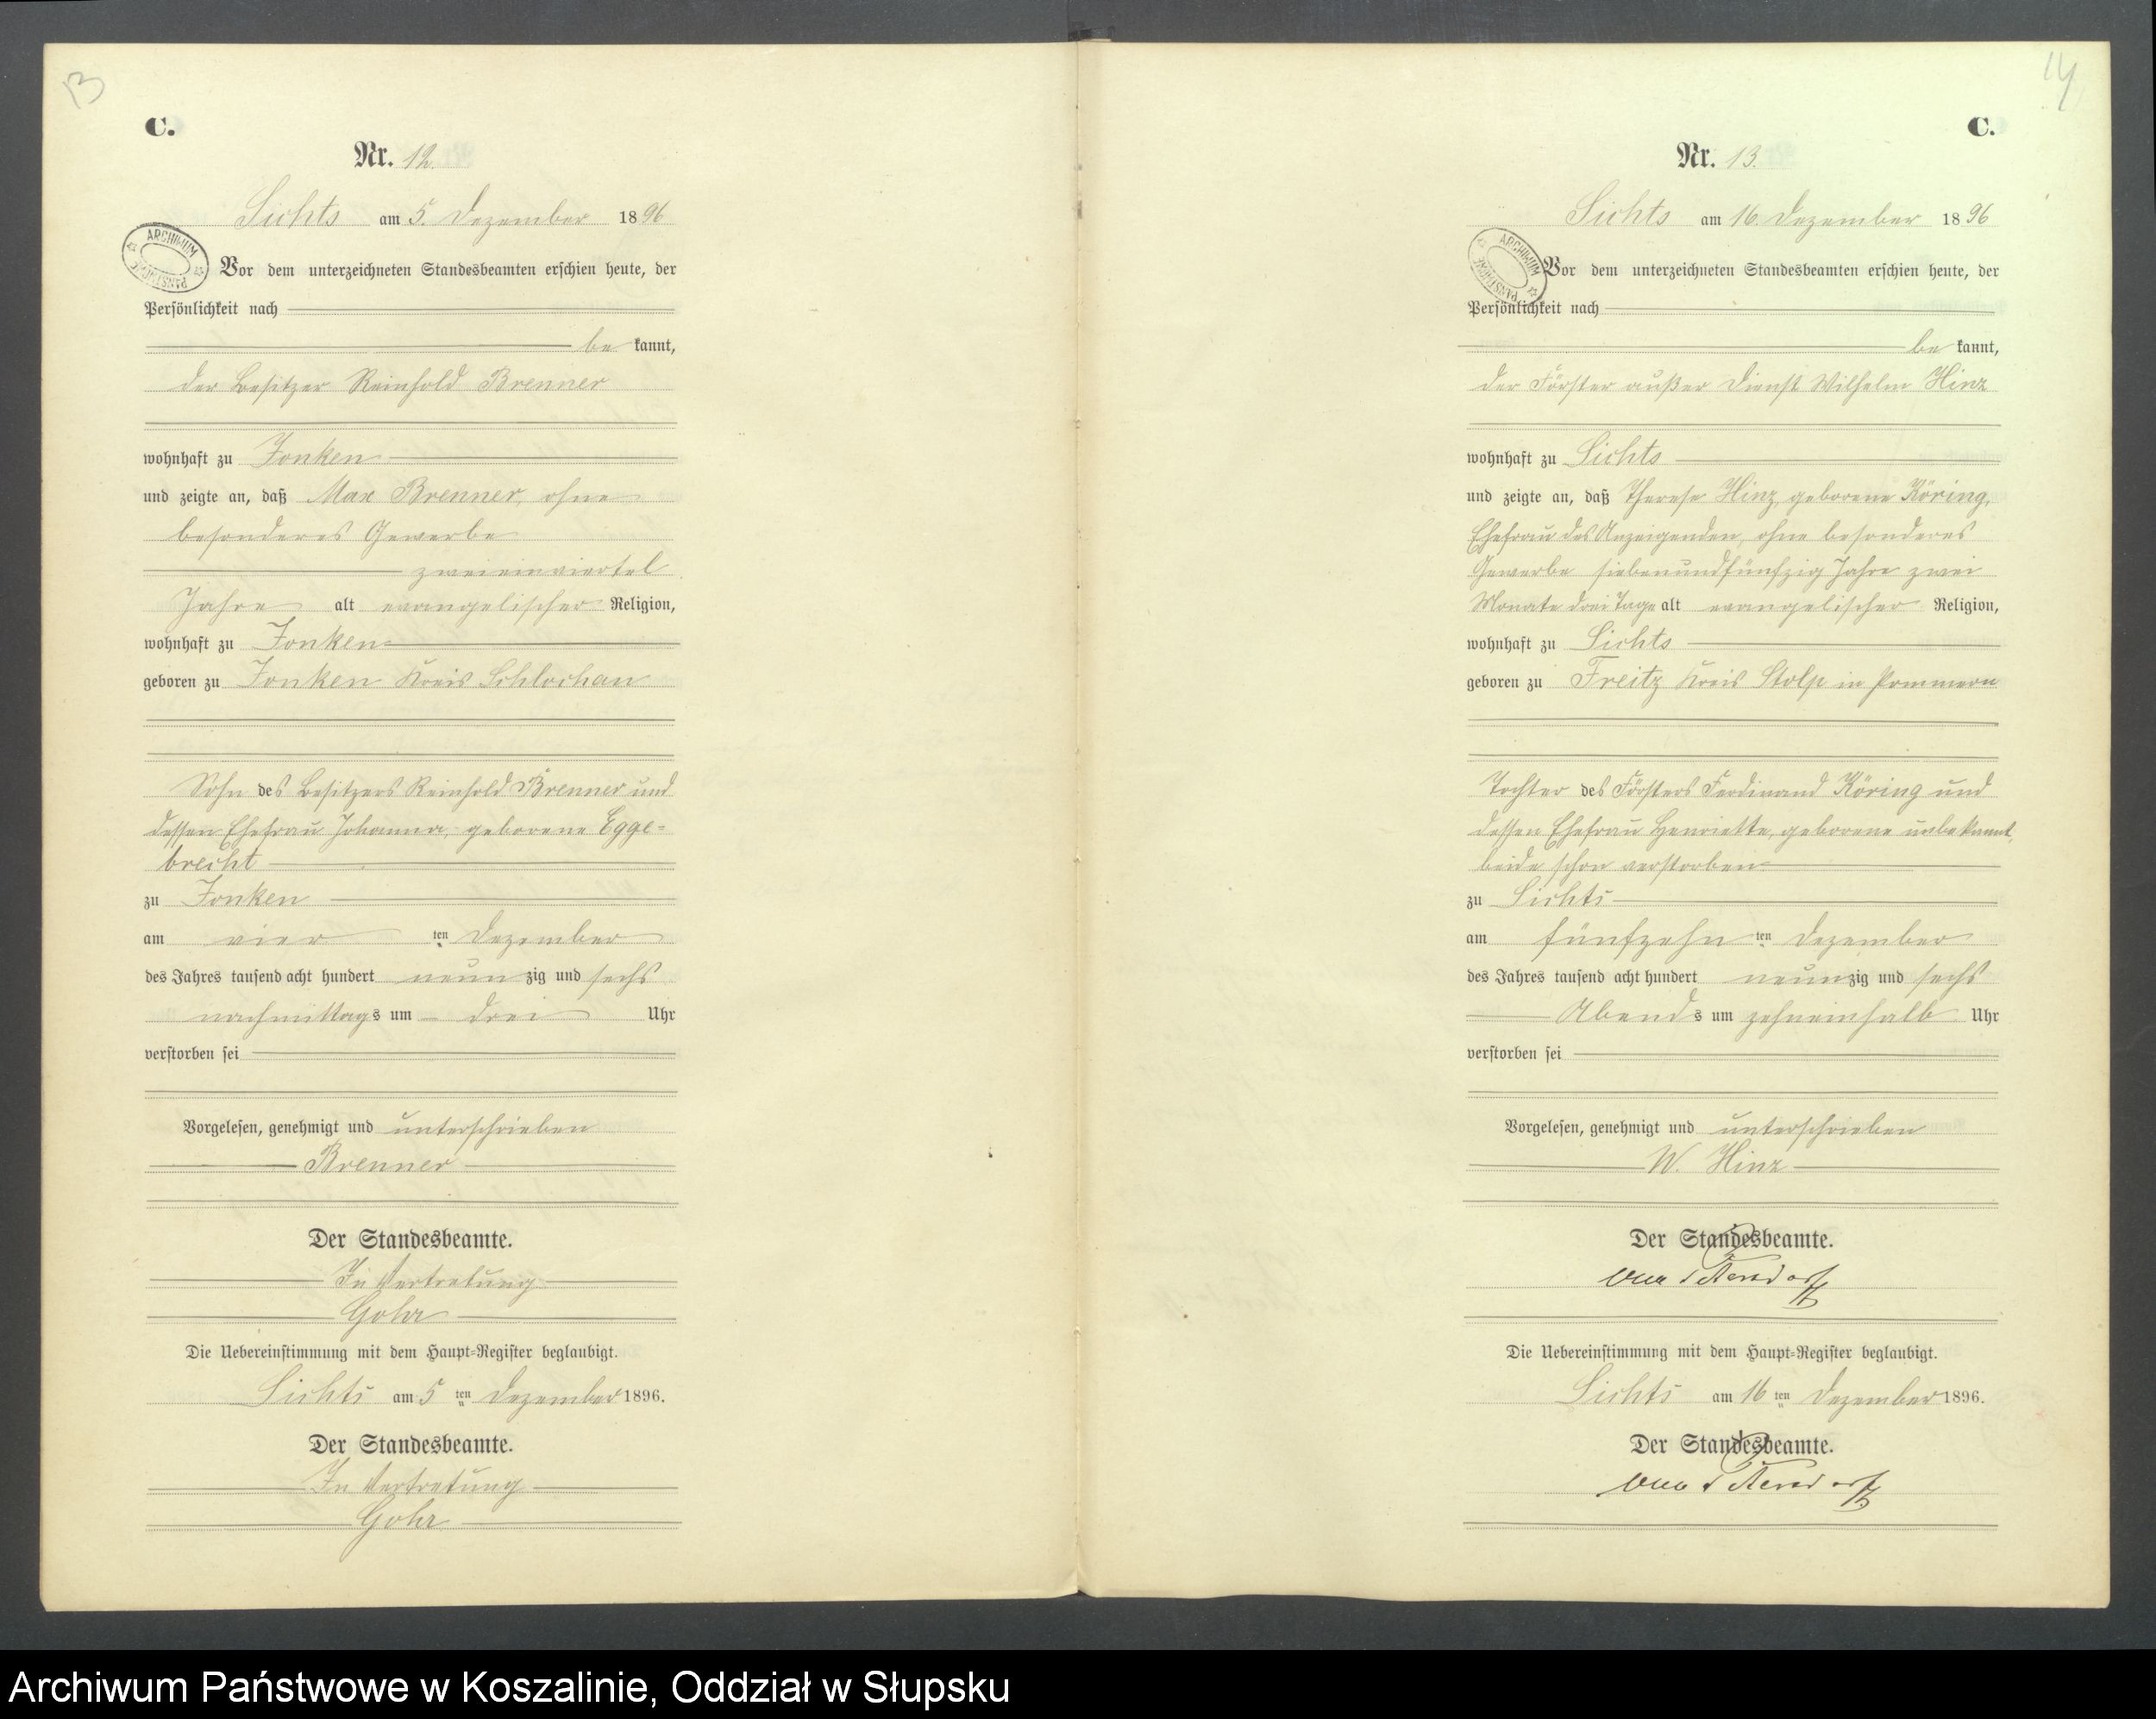 13
C.
Nr. 12.
Sichts am 5. Dezember 1896
ARCHIWUM PAŃSTWOWE
Vor dem unterzeichneten Standesbeamten erschien heute, der
Persönlichkeit nach
be kannt,
der Besitzer Reinhold Brenner
wohnhaft zu Jonken
und zeigte an, daß Max Brenner, ohne
besonderes Gewerbe
zweieinviertel
Jahre alt evangelischer Religion,
wohnhaft zu Jonken
geboren zu Jonken Kreis Schlochau
Sohn des Besitzers Reinhold Brenner und
dessen Ehefrau Johanna, geborene Egge-
brecht
zu Jonken
am vier ten Dezember
des Jahres tausend acht hundert neunzig und sechs
nachmittags um drei Uhr
verstorben sei
Vorgelesen, genehmigt und unterschrieben
Brenner
Der Standesbeamte.
In Vertretung
Gohr
Die Uebereinstimmung mit dem Haupt-Register beglaubigt.
Sichts am 5ten Dezember 1896.
Der Standesbeamte.
In Vertretung
Gohr
14
C.
Nr. 13.
Sichts am 16. Dezember 1896
ARCHIWUM PAŃSTWOWE
Vor dem unterzeichneten Standesbeamten erschien heute, der
Persönlichkeit nach
be kannt,
der Förster außer Dienst Wilhelm Hinz
wohnhaft zu Sichts
und zeigte an, daß Therese Hinz, geborene Köring,
Ehefrau des Anzeigenden, ohne besonderes
Gewerbe siebenundfünfzig Jahre zwei
Monate drei Tage alt evangelischer Religion,
wohnhaft zu Sichts
geboren zu Freitz Kreis Stolp in Pommern
Tochter des Försters Ferdinand Köring und
dessen Ehefrau Henriette, geborene unbekannt,
beide schon verstorben
zu Sichts
am fünfzehn ten Dezember
des Jahres tausend acht hundert neunzig und sechs
Abends um zehneinhalb Uhr
verstorben sei
Vorgelesen, genehmigt und unterschrieben
W. Hinz
Der Standesbeamte.
Die Uebereinstimmung mit dem Haupt-Register beglaubigt.
Sichts am 16ten Dezember 1896.
Der Standesbeamte.
Archiwum Państwowe w Koszalinie, Oddział w Słupsku